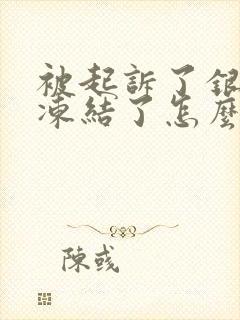 被起訴了銀
凍結了怎麼
陳彧